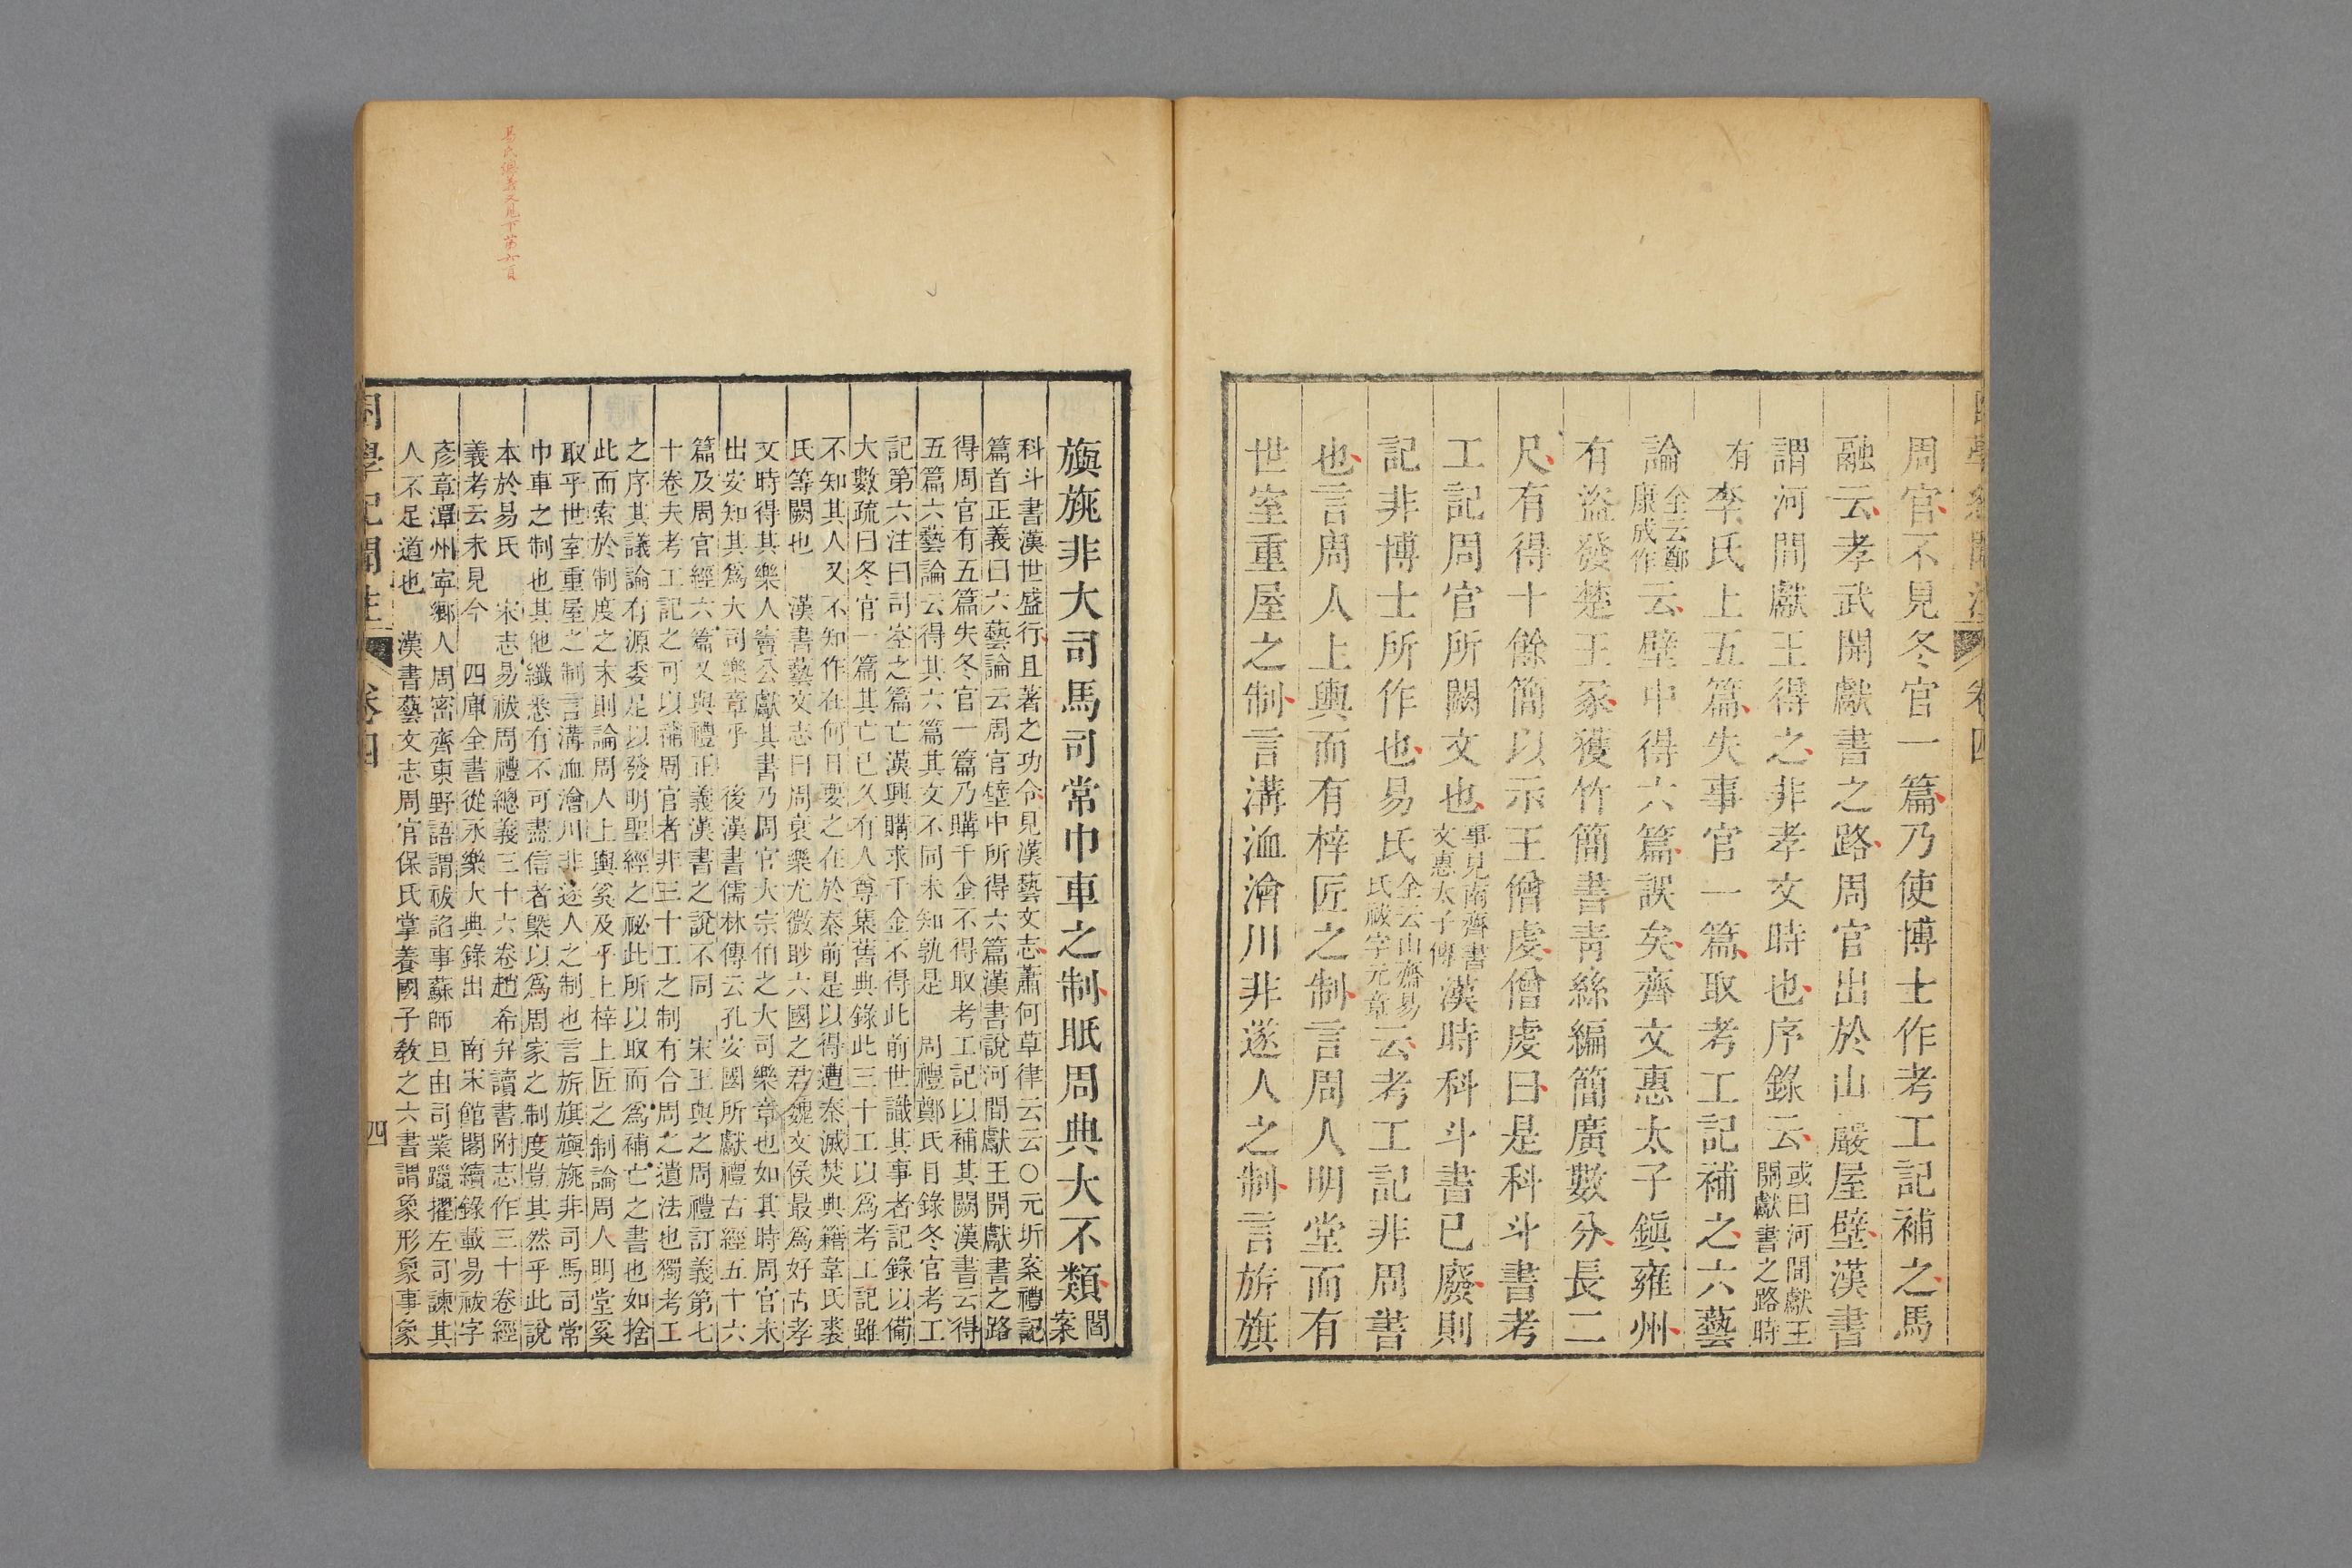 周官不見冬官一篇乃使博士作考工記補之馬
融云孝武開獻書之路周官出於山巖屋壁漢書
謂河間獻王得之非孝文時也序錄云或曰河間獻王開獻書之路時
有李氏上五篇失事官一篇取考工記補之六藝
論全云鄭康成作云壁中得六篇誤矣齊文惠太子鎮雍州
有盜發楚王冢獲竹簡書青絲編簡廣數分長二
尺有得十餘簡以示王僧虔僧虔曰是科斗書考
工記周官所闕文也事見南齊書文惠太子傳漢時科斗書已廢則
記非博士所作也易氏全云山齋易氏祓字元章云考工記非周書
也言周人上輿而有梓匠之制言周人明堂而有
世室重屋之制言溝洫澮川非遂人之制言旂旗
旟旐非大司馬司常巾車之制眡周典大不類閻案
科斗書漢世盛行且著之功令見漢藝文志蕭何草律云云○元圻案禮記
篇首正義曰六藝論云周官壁中所得六篇漢書說河間獻王開獻書之路
得周官有五篇失冬官一篇乃購千金不得取考工記以補其闕漢書云得
五篇六藝論云得其六篇其文不同未知孰是 周禮鄭氏目錄冬官考工
記第六注曰司空之篇亡漢興購求千金不得此前世識其事者記錄以備
大數疏曰冬官一篇其亡已久有人尊集舊典錄此三十工以爲考工記雖
不知其人又不知作在何日要之在於秦前是以得遭秦滅焚典籍韋氏裘
氏等闕也 漢書藝文志曰周衰樂尤微眇六國之君魏文侯最爲好古孝
文時得其樂人竇公獻其書乃周官大宗伯之大司樂章也如其時周官未
出安知其爲大司樂章乎 後漢書儒林傳云孔安國所獻禮古經五十六
篇及周官經六篇又與禮正義漢書之說不同 宋王與之周禮訂義第七
十卷夫考工記之可以補周官者非三十工之制有合周之遺法也獨考工
之序其議論有源委足以發明聖經之祕此所以取而爲補亡之書也如捨
此而索於制度之末則論周人上輿奚及乎上梓上匠之制論周人明堂奚
取乎世室重屋之制言溝洫澮川非遂人之制也言旂旗旟旐非司馬司常
巾車之制也其他纖悉有不可盡信者槩以爲周家之制度豈其然乎此說
本於易氏 宋志易祓周禮總義三十六卷趙希弁讀書附志作三十卷經
義考云未見今 四庫全書從永樂大典錄出 南宋館閣續錄載易祓字
彥章潭州寧鄉人周密齊東野語謂祓諂事蘇師旦由司業躐擢左司諫其
人不足道也 漢書藝文志周官保氏掌養國子教之六書謂象形象事象
卷四
四
易氏總義又見下第六頁